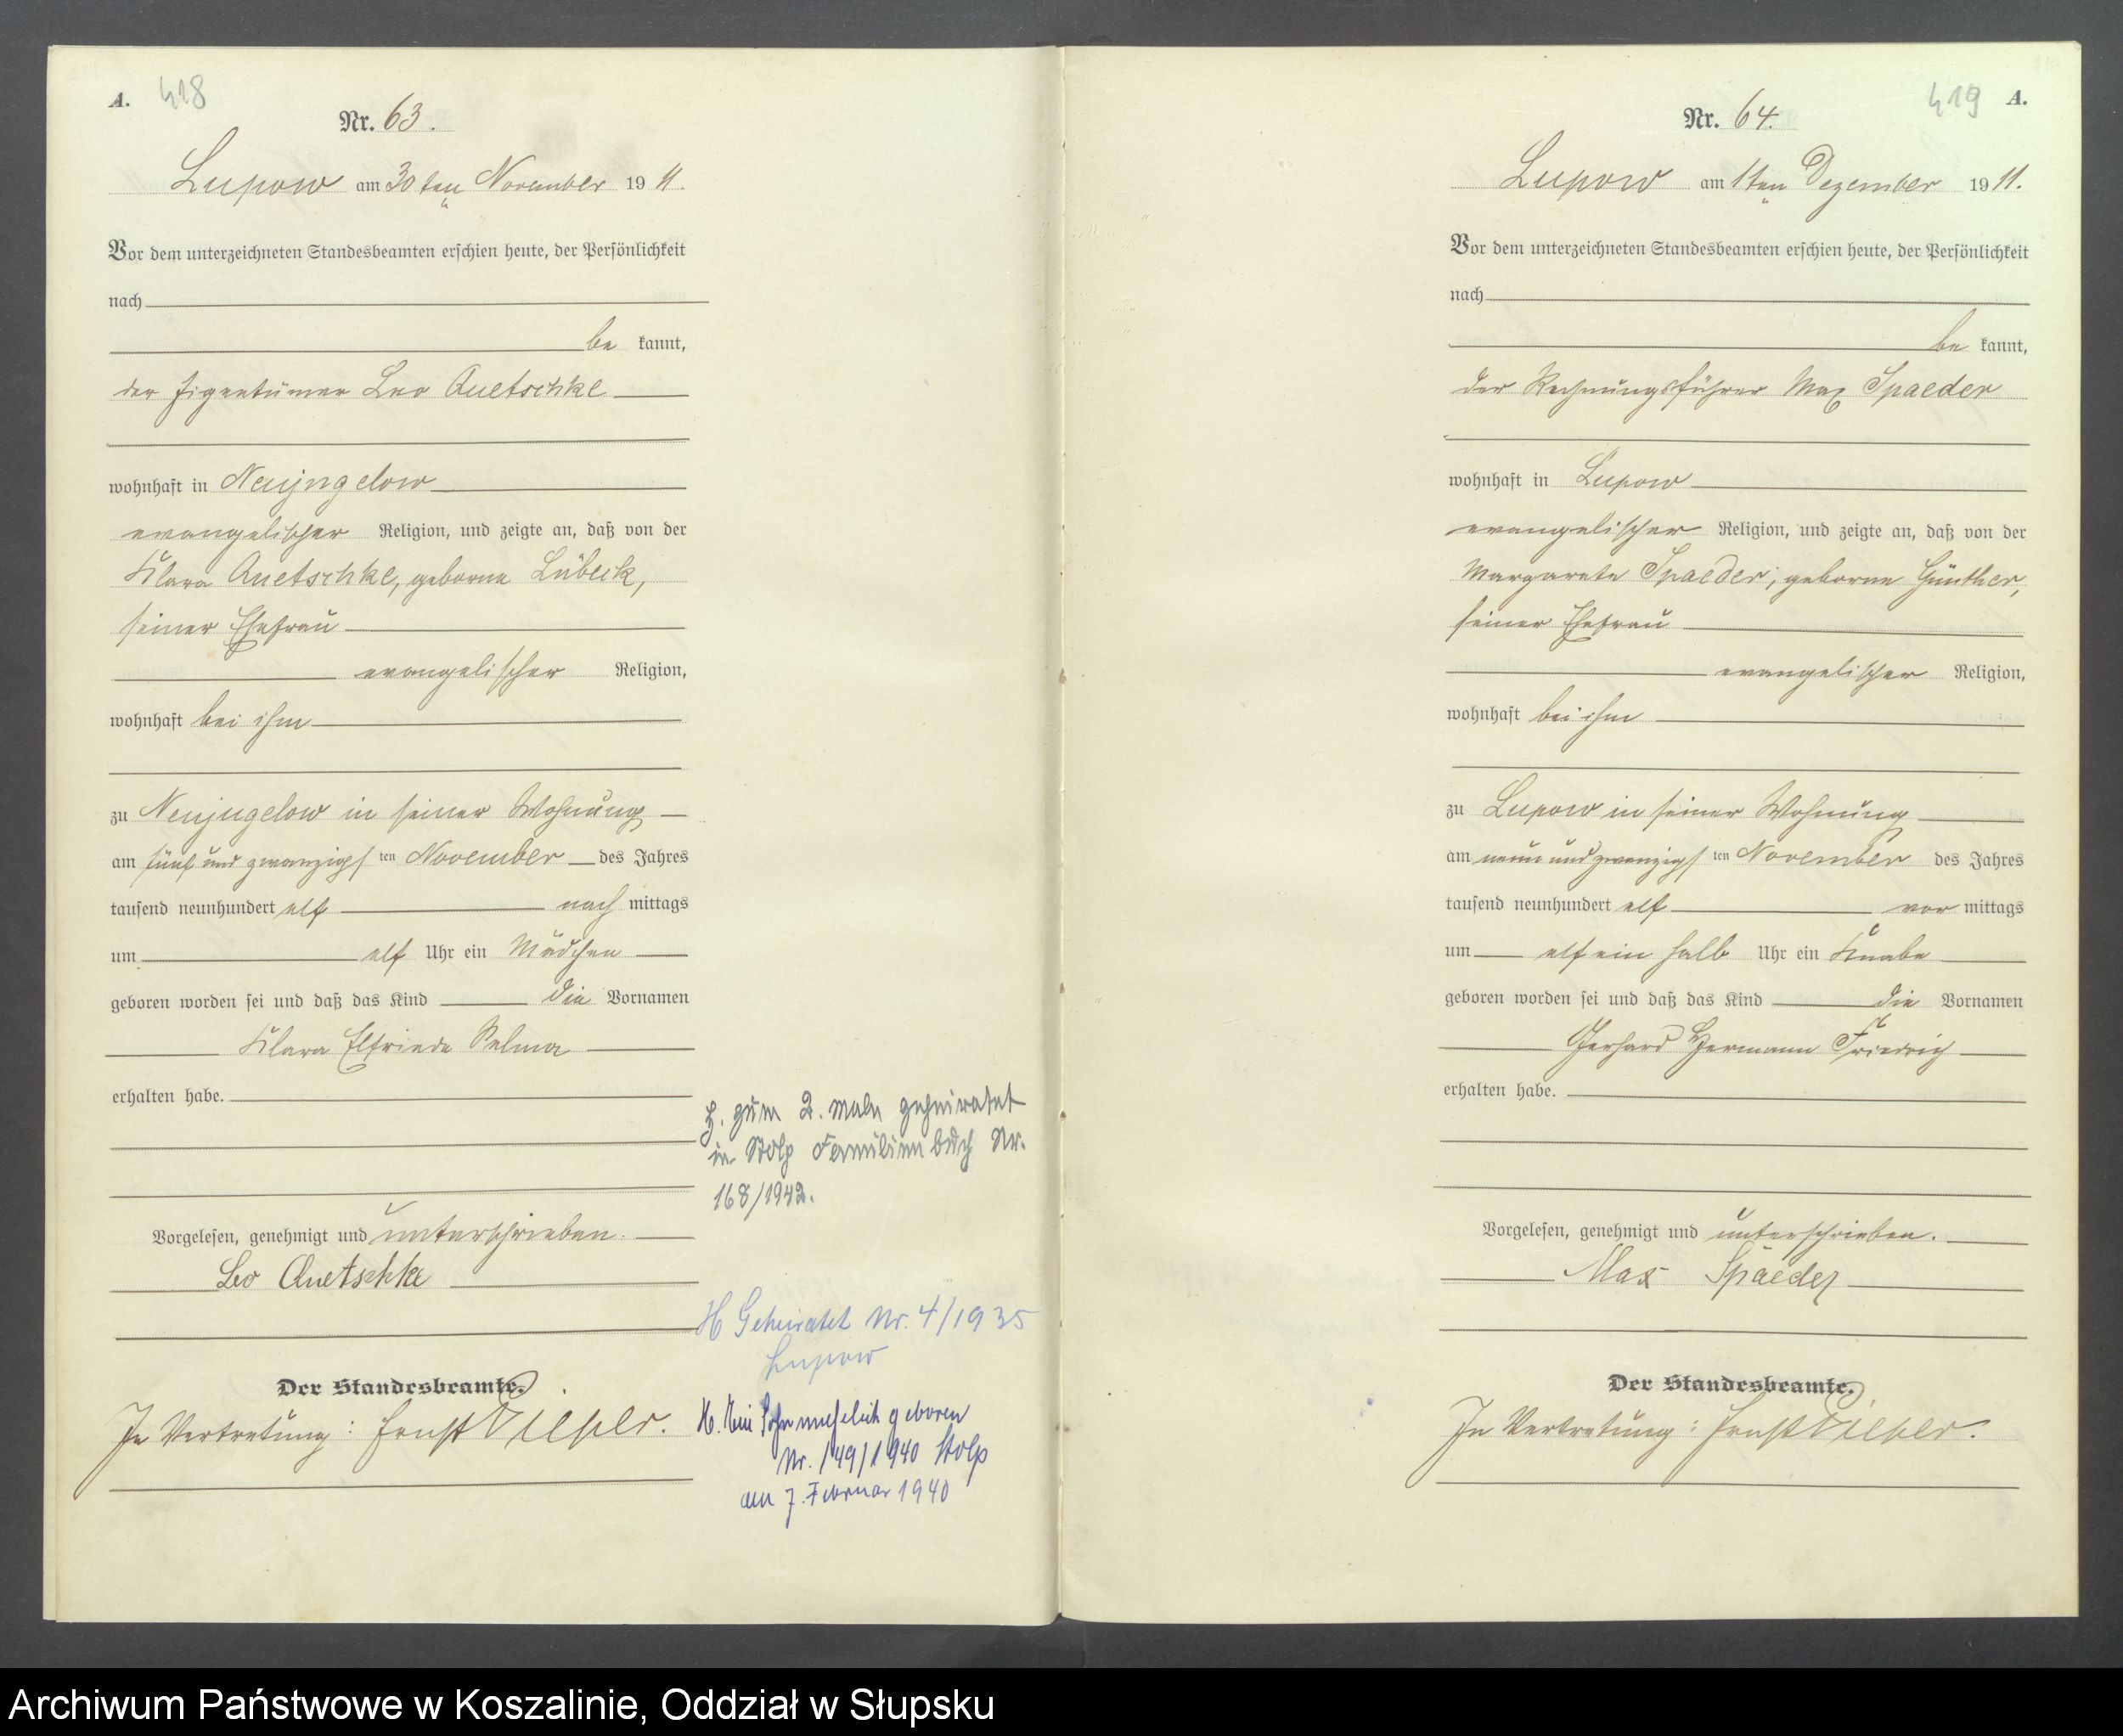 A. 418
Nr. 63.
Lupow am 30ten November 1911.
Vor dem unterzeichneten Standesbeamten erschien heute, der Persönlichkeit
nach
be kannt,
der Eigentümer Leo Quetschke
wohnhaft in Neujugelow
evangelischer Religion, und zeigte an, daß von der
Klara Quetschke, geborne Lübeck,
seiner Ehefrau
evangelischer Religion,
wohnhaft bei ihm
zu Neujugelow in seiner Wohnung
am fünf und zwanzigsten November des Jahres
tausend neunhundert elf nach mittags
um elf Uhr ein Mädchen
geboren worden sei und daß das Kind die Vornamen
Klara Elfriede Selma
erhalten habe.
H. zum 2. Male geheiratet
in Stolp Familienbuch Nr.
168/1942.
Vorgelesen, genehmigt und unterschrieben.
Leo Quetschke
H Geheiratet Nr. 4/1935
Lupow
Der Standesbeamte.
In Vertretung: Ernst
H. Ein Sohn unehelich geboren
Nr. 149/1940 Stolp
am 7. Februar 1940
419 A.
Nr. 64.
Lupow am 1ten Dezember 1911.
Vor dem unterzeichneten Standesbeamten erschien heute, der Persönlichkeit
nach
be kannt,
der Rechnungsführer Max Spaeder
wohnhaft in Lupow
evangelischer Religion, und zeigte an, daß von der
Margarete Spaeder, geborne Günther,
seiner Ehefrau
evangelischer Religion,
wohnhaft bei ihm
zu Lupow in seiner Wohnung
am neun und zwanzigsten November des Jahres
tausend neunhundert elf vor mittags
um elf ein halb Uhr ein Knabe
geboren worden sei und daß das Kind die Vornamen
Gerhard Hermann Friedrich
erhalten habe.
Vorgelesen, genehmigt und unterschrieben.
Max Spaeder
Der Standesbeamte.
In Vertretung: Ernst
Archiwum Państwowe w Koszalinie, Oddział w Słupsku